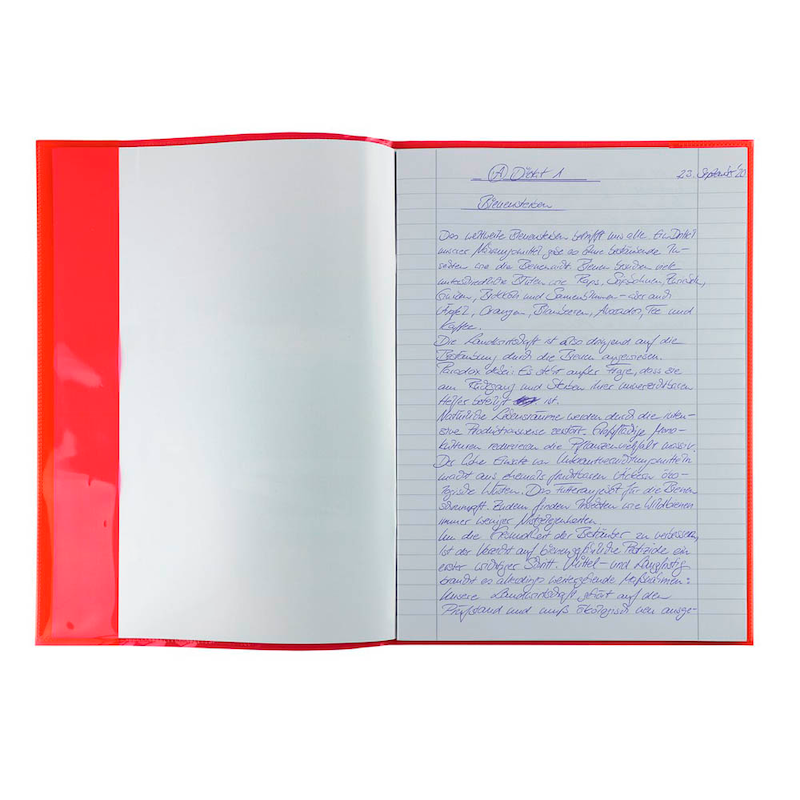 A Diktat 1
23. September '20
Bienensterben
Das weltweite Bienensterben betrifft uns alle. Ein Drittel
unserer Nahrungsmittel gäbe es ohne bestäubende In-
sekten wie den Bienen nicht. Bienen bestäuben viele
unterschiedliche Blüten wie Raps,
Gurken, und Sonnenblumen - aber auch
Äpfel, Orangen, Blaubeeren, Avocados, Tee und
Kaffee.
Die Landwirtschaft ist also dringend auf die
Bestäubung durch die Bienen angewiesen.
Paradox dabei: Es steht außer Frage, dass sie
am Rückgang und Sterben ihrer unverzichtbaren
Helfer beteiligt ist.
Natürliche Lebensräume werden durch die inten-
sive Produktionsweise zerstört. Großflächige Mono-
kulturen reduzieren die Pflanzenvielfalt massiv.
Der hohe Einsatz von Unkrautvernichtungsmitteln
macht aus ehemals fruchtbaren Äckern ökolo-
gische Wüsten. Das Futterangebot für die Bienen
schrumpft. Zudem finden Insekten wie Wildbienen
immer weniger Nistgelegenheiten.
Um die Gesundheit der Bestäuber zu verbessern,
ist der Verzicht auf bienengefährliche Pestizide ein
erster wichtiger Schritt. Mittel- und langfristig
braucht es allerdings weitergehende Maßnahmen:
Unsere Landwirtschaft gehört auf den
Prüfstand und muß ökologisch neu ausge-